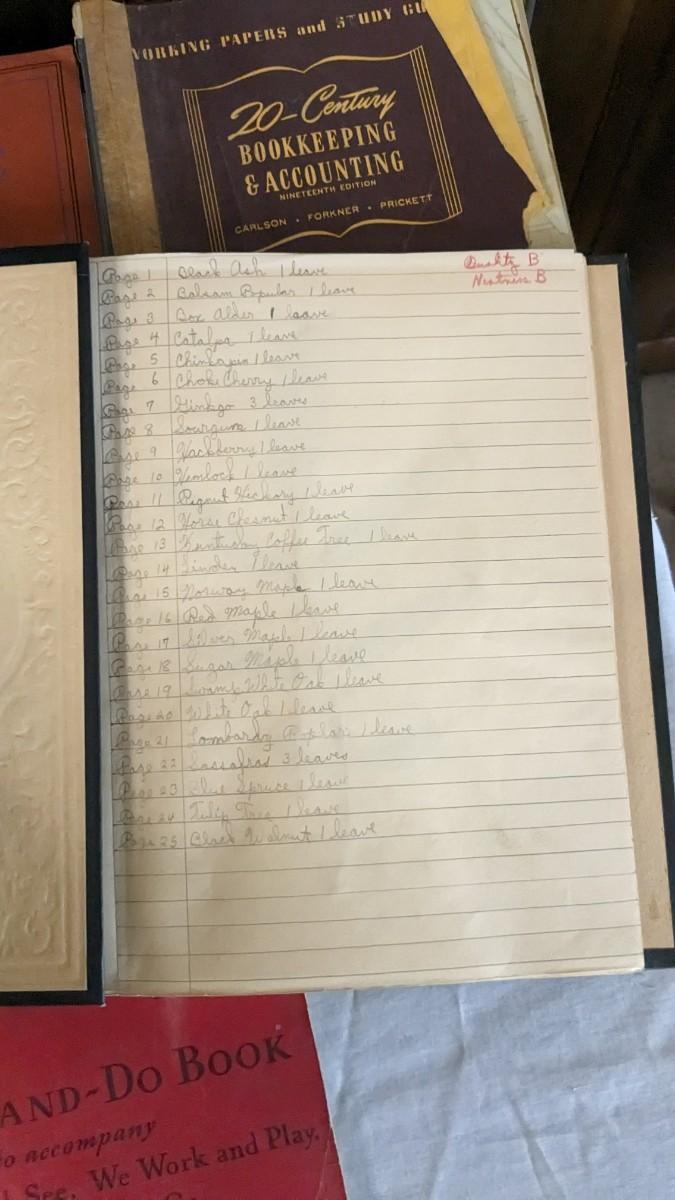 WORKING PAPERS and STUDY GU
20-Century
BOOKKEEPING
& ACCOUNTING
NINETEENTH EDITION
CARLSON • FORKNER • PRICKETT
Quality B
Neatness B
Page 1 Black Ash 1 leave
Page 2 Balsam Popular 1 leave
Page 3 Box Alder 1 leave
Page 4 Catalpa 1 leave
Page 5 Chinkapin 1 leave
Page 6 Choke Cherry 1 leave
Page 7 Ginkgo 3 leaves
Page 8 Sourgum 1 leave
Page 9 Hackberry 1 leave
Page 10 Hemlock 1 leave
Page 11 Pignut Hickory 1 leave
Page 12 Horse Chesnut 1 leave
Page 13 Kentucky Coffee Tree 1 leave
Page 14 Linden 1 leave
Page 15 Norway Maple 1 leave
Page 16 Red Maple 1 leave
Page 17 Silver Maple 1 leave
Page 18 Sugar Maple 1 leave
Page 19 Swamp White Oak 1 leave
Page 20 White Oak 1 leave
Page 21 Lombardy Poplar 1 leave
Page 22 Sassafras 3 leaves
Page 23 Blue Spruce 1 leave
Page 24 Tulip Tree 1 leave
Page 25 Black Walnut 1 leave
AND-DO BOOK
to accompany
See, We Work and Play.